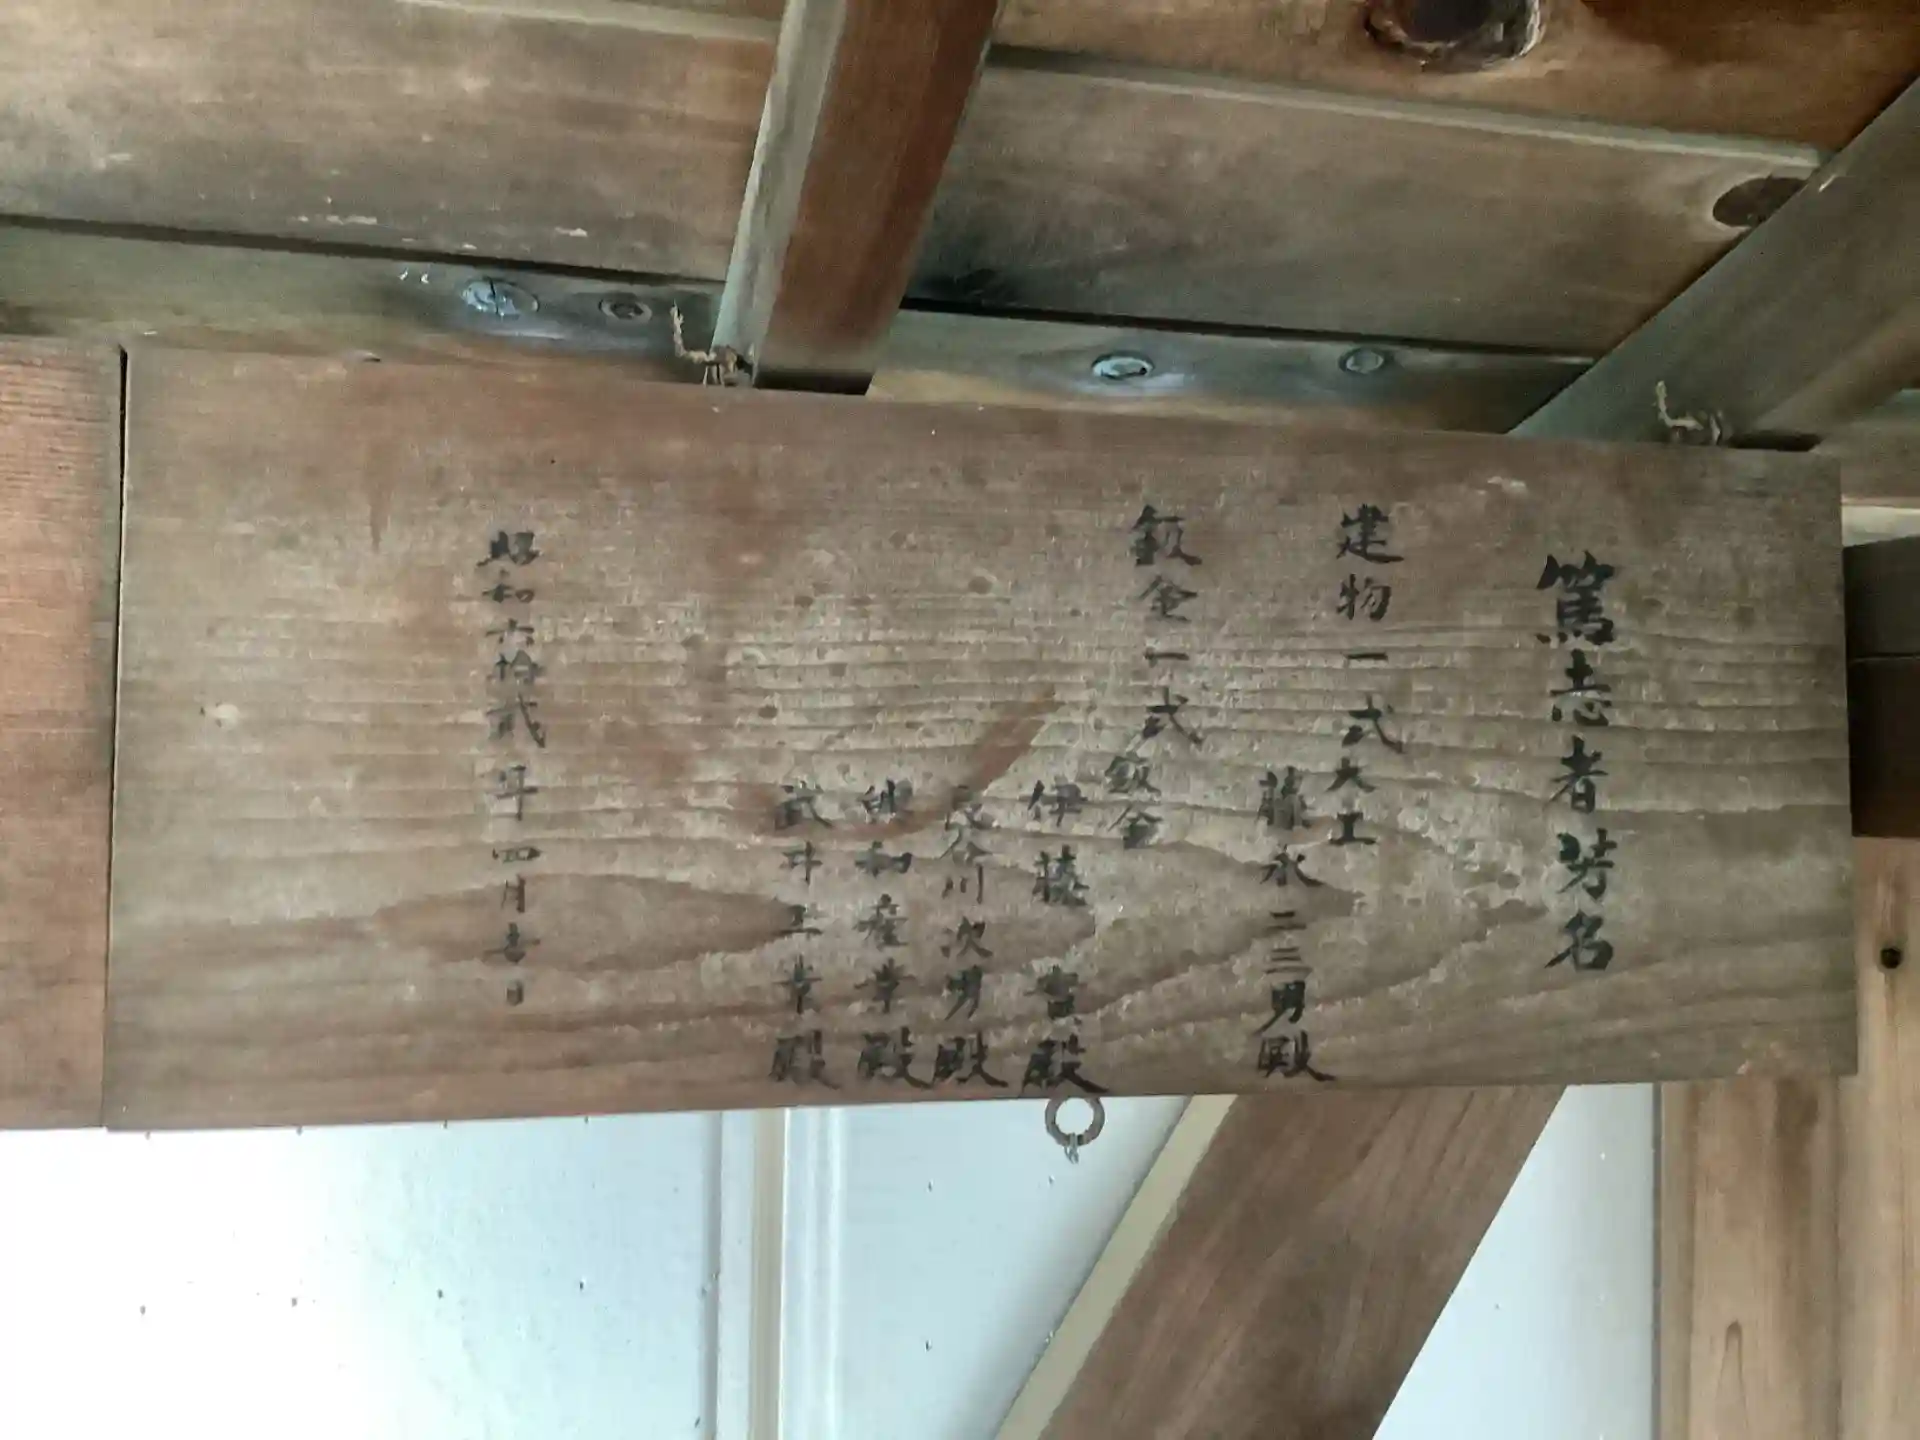 篤志者芳名
建物一式大工
藤永二三男殿
鈑金一式鈑金
伊藤 實殿
長谷川次男殿
和産業殿
武井工業殿
昭和六拾弐年四月吉日